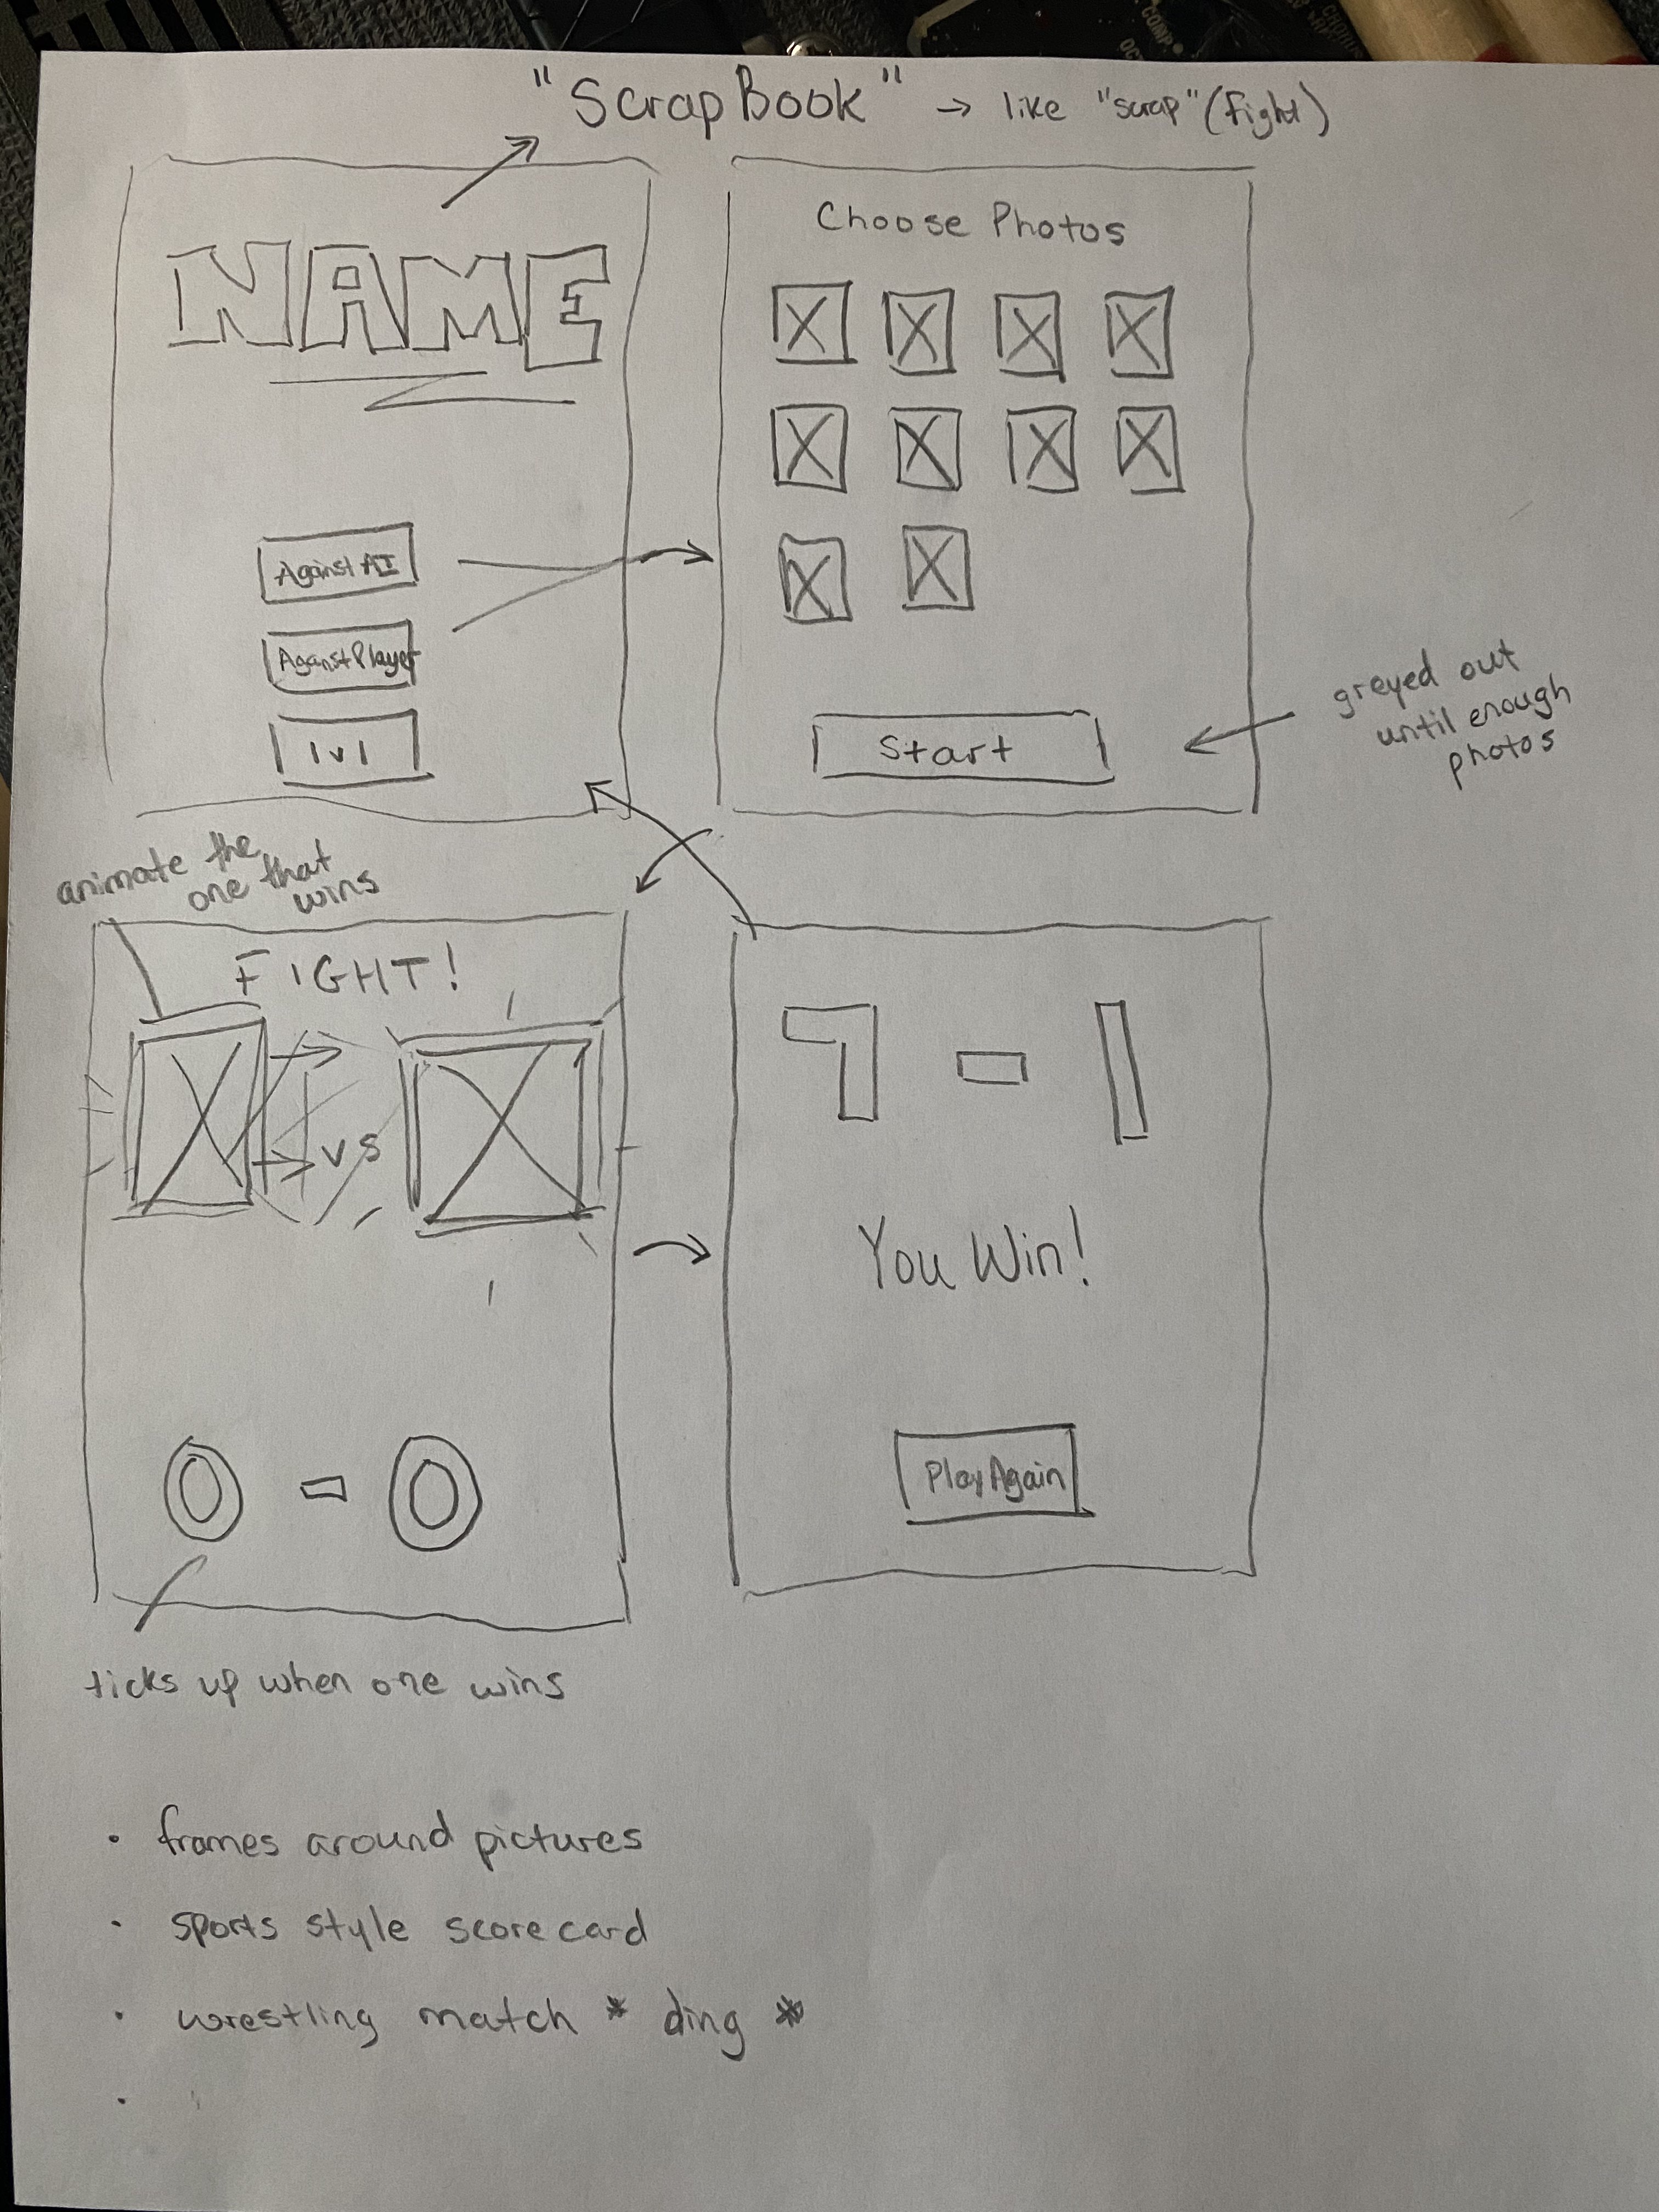 "ScrapBook" → like "scrap" (fight)
NAME
Against AI
Against Player
1v1
Choose Photos
Start
greyed out
until enough
photos
animate the
one that
wins
FIGHT!
vs
0 - 0
ticks up when one wins
7 - 1
You Win!
Play Again
• frames around pictures
• sports style scorecard
• wrestling match * ding *
•